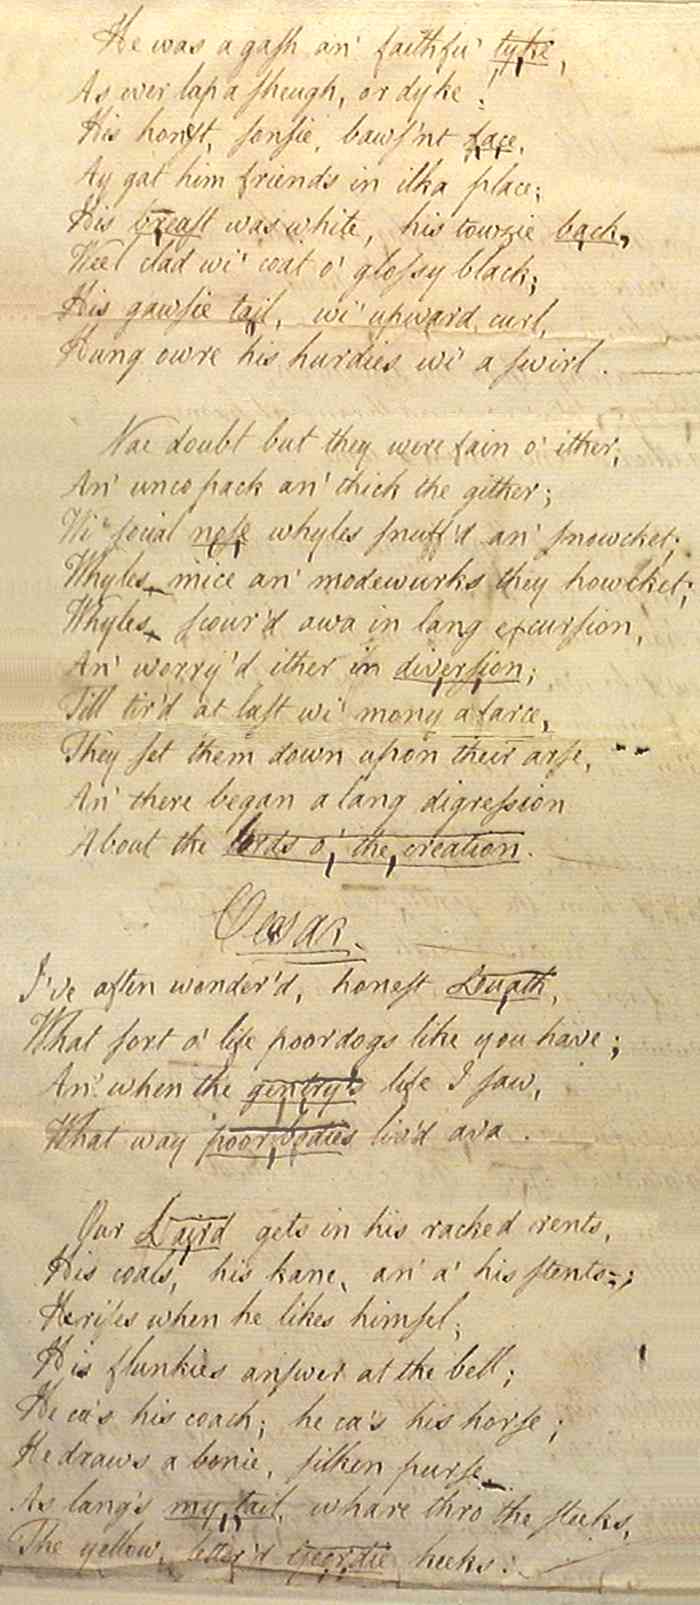 He was a gash an' faithfu' tyke,
As ever lap a sheugh, or dyke!
His honest, sonsie, baws'nt face,
Ay gat him friends in ilka place;
His breast was white, his towzie back,
Weel clad wi' coat o' glossy black;
His gawsie tail, wi' upward curl,
Hung owre his hurdies wi' a swirl.
Nae doubt but they were fain o' ither,
An' unco pack an' thick the gither;
Wi' social nose whyles snuff'd an' snowcket;
Whyles mice an' modewurks they howcket;
Whyles scour'd awa in lang excursion,
An' worry'd ither in diversion;
Till tir'd at last wi' mony a farce,
They set them down upon their arse,
An' there began a lang digression
About the lords o' the creation.
Cesar.
I've aften wonder'd, honest Luath,
What sort o' life poor dogs like you have;
An' when the gentry's life I saw,
What way poor bodies liv'd ava.
Our Laird gets in his racked rents,
His coals, his kane, an' a' his stents;
He rises when he likes himsel;
His flunkies answer at the bell;
He ca's his coach; he ca's his horse;
He draws a bonie, silken purse
As lang's my tail, whare thro the steeks,
The yellow, letter'd Geordie keeks.